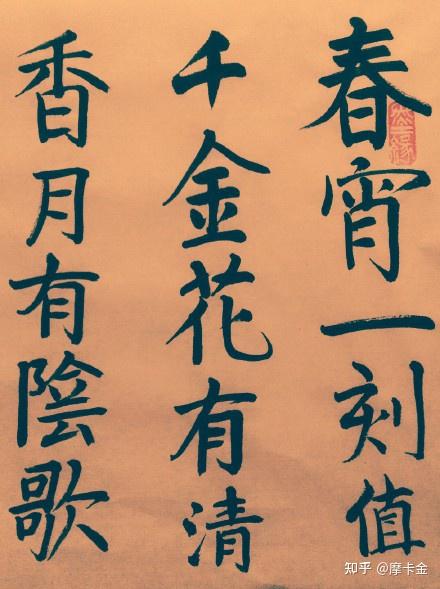 春宵一刻值
千金花有清
香月有陰歌
知乎 @摩卡金